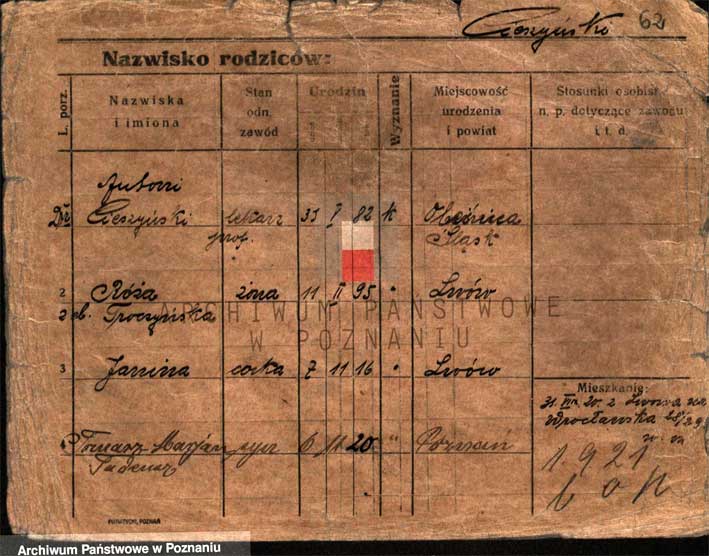 Cieszyński 62
Nazwisko rodziców:
L. porz.
Nazwiska
i imiona
Stan
odn.
zawód
Urodzin
Wyznanie
Miejscowość
urodzenia
i powiat
Stosunki osobist
n. p. dotyczące zawodu
i t. d.
Antoni
Dr Cieszyński lekarz 31 V 82 k
prof. Śląsk
2 Róża żona 11 II 95 " Lwów
z d. Troczyńska
3 Janina córka 7 11 16 " Lwów
Mieszkanie:
31 VII 20. z Lwowa
Wrocławska
4 Tomasz Marjan syn 6 11 20 " Poznań
Tadeusz
1921
ARCHIWUM PAŃSTWOWE
W POZNANIU
Archiwum Państwowe w Poznaniu